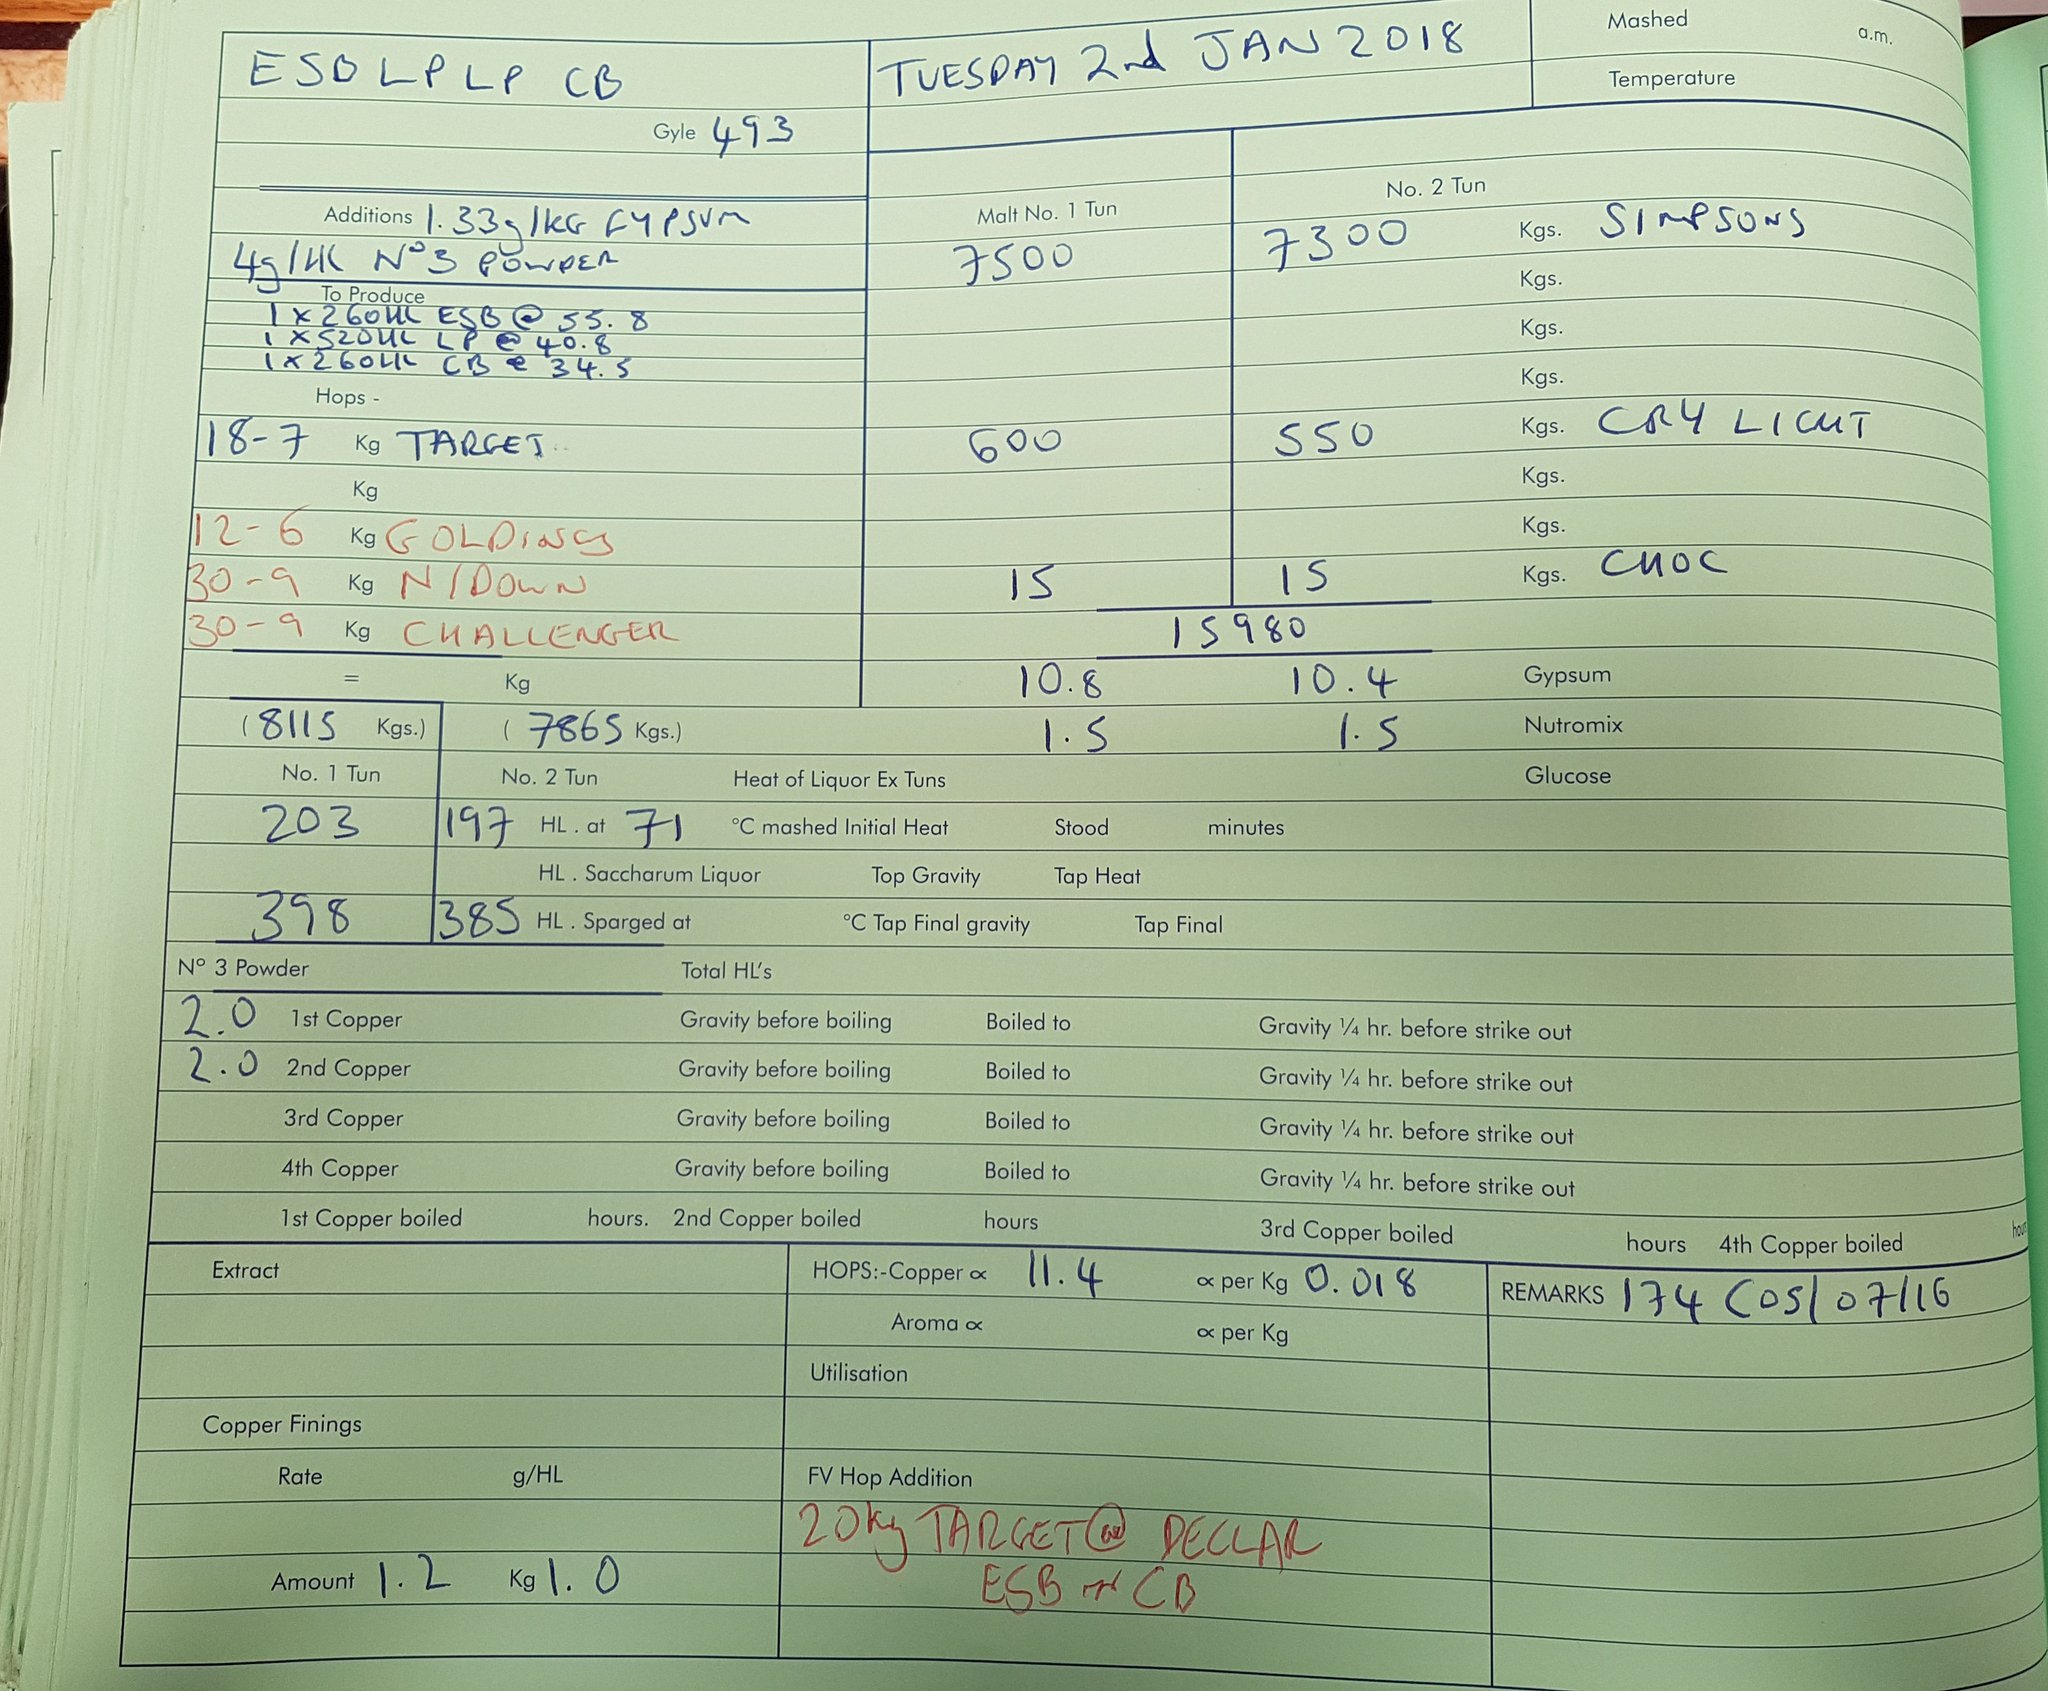 ESB LP LP CB
TUESDAY 2nd JAN 2018
Mashed a.m.
Temperature
Gyle 493
Additions 1.33g/KG GYPSUM
4g/HL Nº3 POWDER
Malt No. 1 Tun
No. 2 Tun
7500 7300 Kgs. SIMPSONS
Kgs.
To Produce
1 x 260HL ESB @ 55.8
1 x 520HL LP @ 40.8
1 x 260HL CB @ 34.5
Kgs.
Kgs.
Hops -
18-7 Kg TARGET 600 550 Kgs. CRY LIGHT
Kg Kgs.
12-6 Kg GOLDINGS Kgs.
30-9 Kg N/DOWN 15 15 Kgs. CHOC
30-9 Kg CHALLENGER 15980
= Kg 10.8 10.4 Gypsum
(8115 Kgs.) (7865 Kgs.) 1.5 1.5 Nutromix
No. 1 Tun No. 2 Tun Heat of Liquor Ex Tuns Glucose
203 197 HL. at 71 °C mashed Initial Heat Stood minutes
HL. Saccharum Liquor Top Gravity Tap Heat
398 385 HL. Sparged at °C Tap Final gravity Tap Final
Nº 3 Powder Total HL's
2.0 1st Copper Gravity before boiling Boiled to Gravity ¼ hr. before strike out
2.0 2nd Copper Gravity before boiling Boiled to Gravity ¼ hr. before strike out
3rd Copper Gravity before boiling Boiled to Gravity ¼ hr. before strike out
4th Copper Gravity before boiling Boiled to Gravity ¼ hr. before strike out
1st Copper boiled hours. 2nd Copper boiled hours 3rd Copper boiled hours 4th Copper boiled hours
Extract
HOPS:-Copper ∝ 11.4 ∝ per Kg 0.018
REMARKS 174 COS/07/16
Aroma ∝ ∝ per Kg
Utilisation
Copper Finings
Rate g/HL
FV Hop Addition
20kg TARGET @ DECLAR
ESB CB
Amount 1.2 Kg 1.0